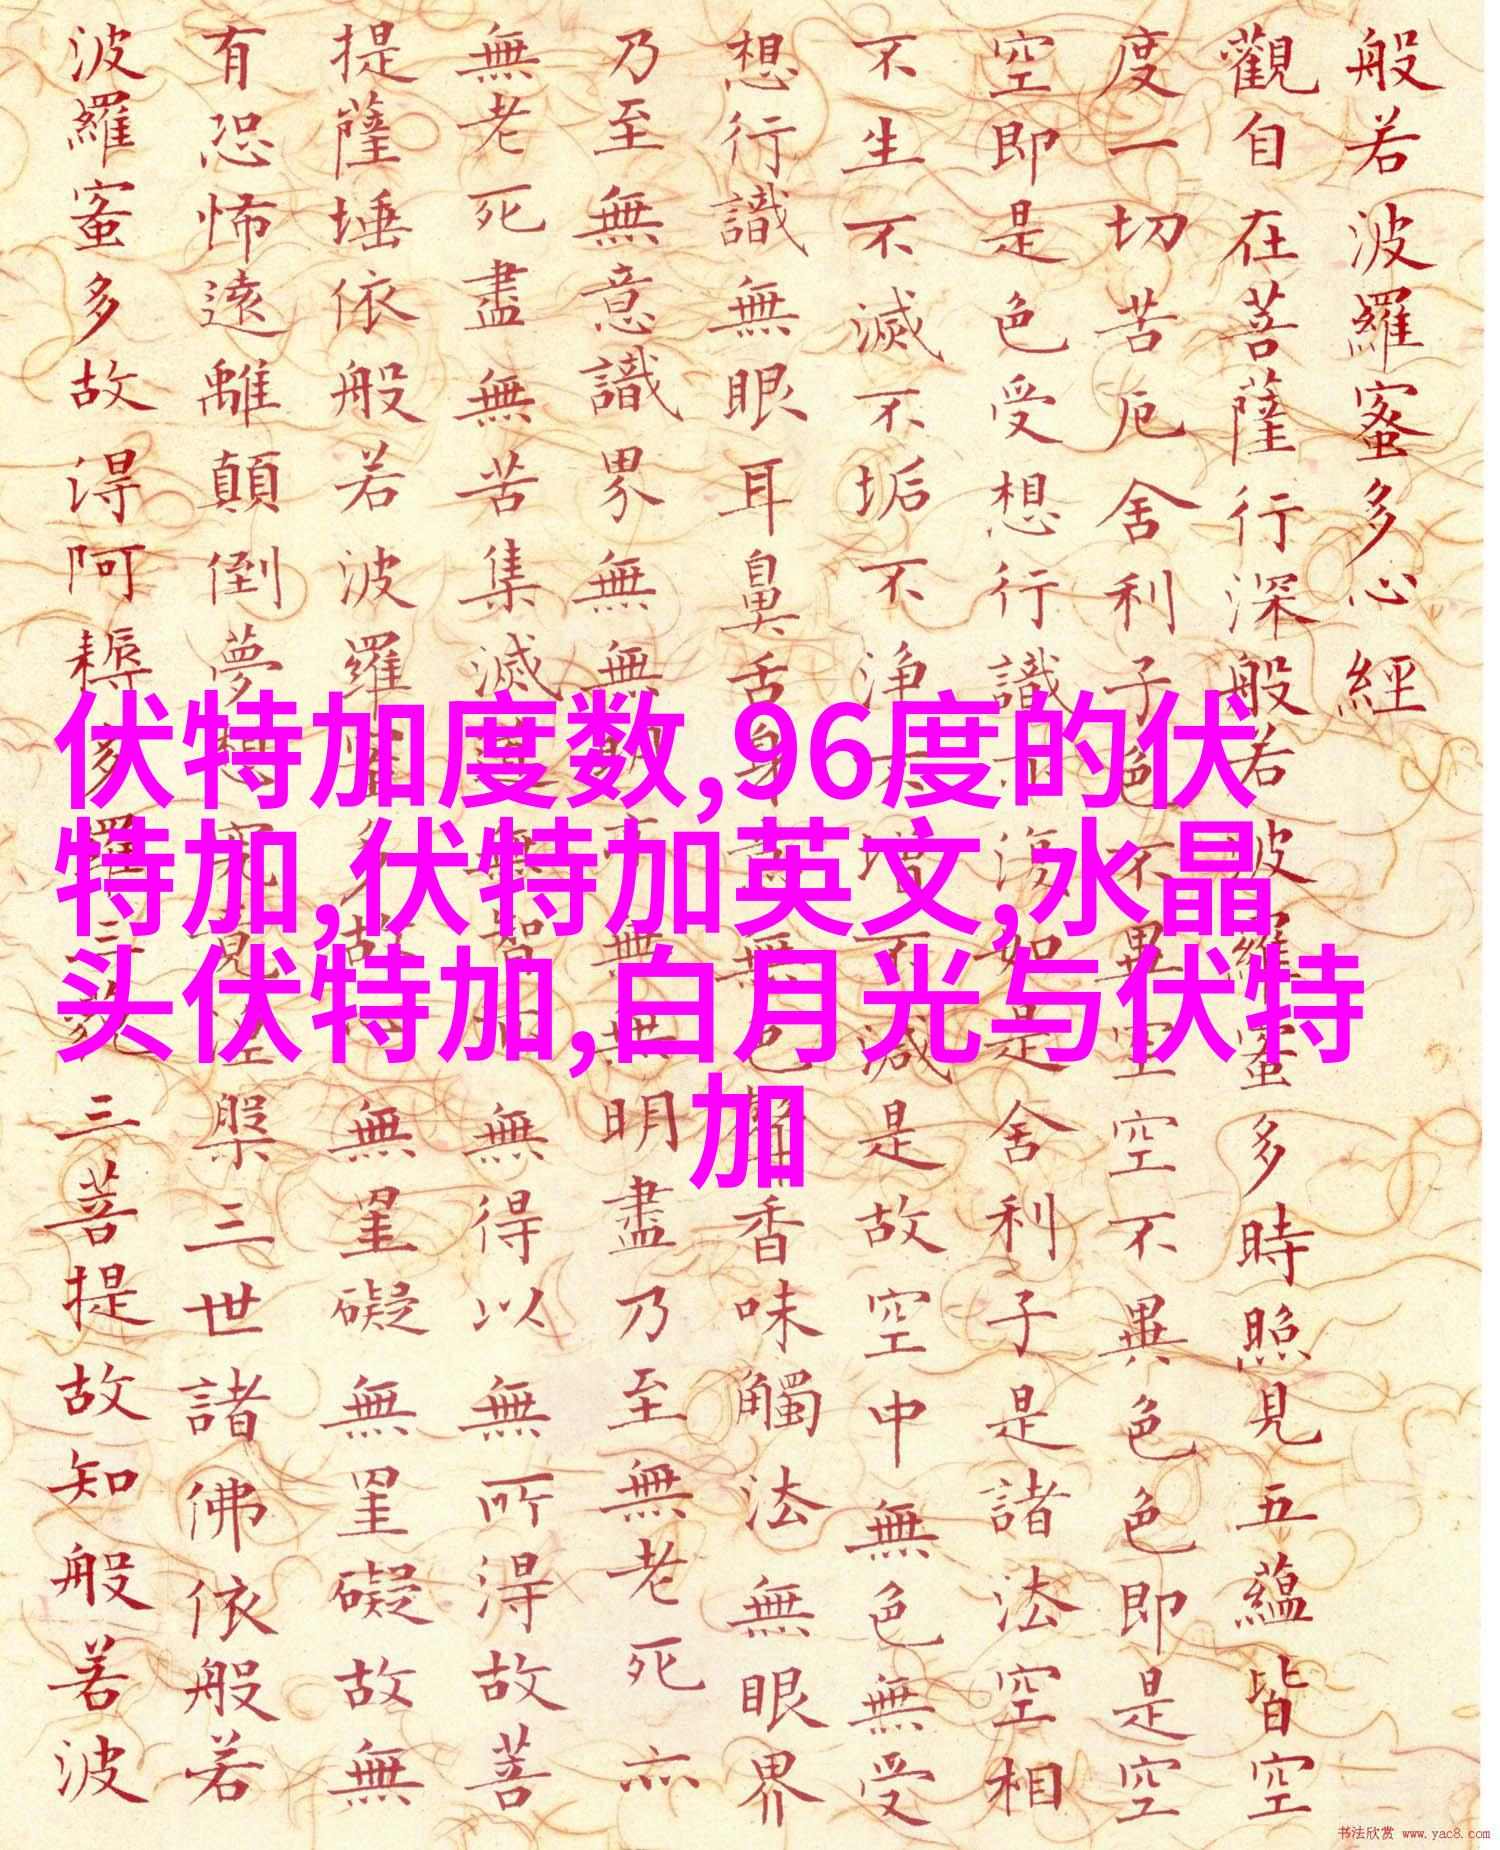 般若波羅蜜多心經
觀自在菩薩行深般若波羅蜜多時照見五蘊皆空
度一切苦厄舍利子色不異空空不異色色即是空
空即是色受想行識亦復如是舍利子是諸法空相
不生不滅不垢不淨不增不減是故空中無色無受
想行識無眼耳鼻舌身意無色聲香味觸法無眼界
乃至無意識界無無明亦無無明盡乃至無老死亦
無老死盡無苦集滅道無智亦無得以無所得故菩
提薩埵依般若波羅蜜多故心無罣礙無罣礙故無
有恐怖遠離顛倒夢想究竟涅槃三世諸佛依般若
波羅蜜多故得阿耨多羅三藐三菩提故知般若波
伏特加度数,96度的伏
特加,伏特加英文,水晶
头伏特加,白月光与伏特
加
书法欣赏 www.yac8.com